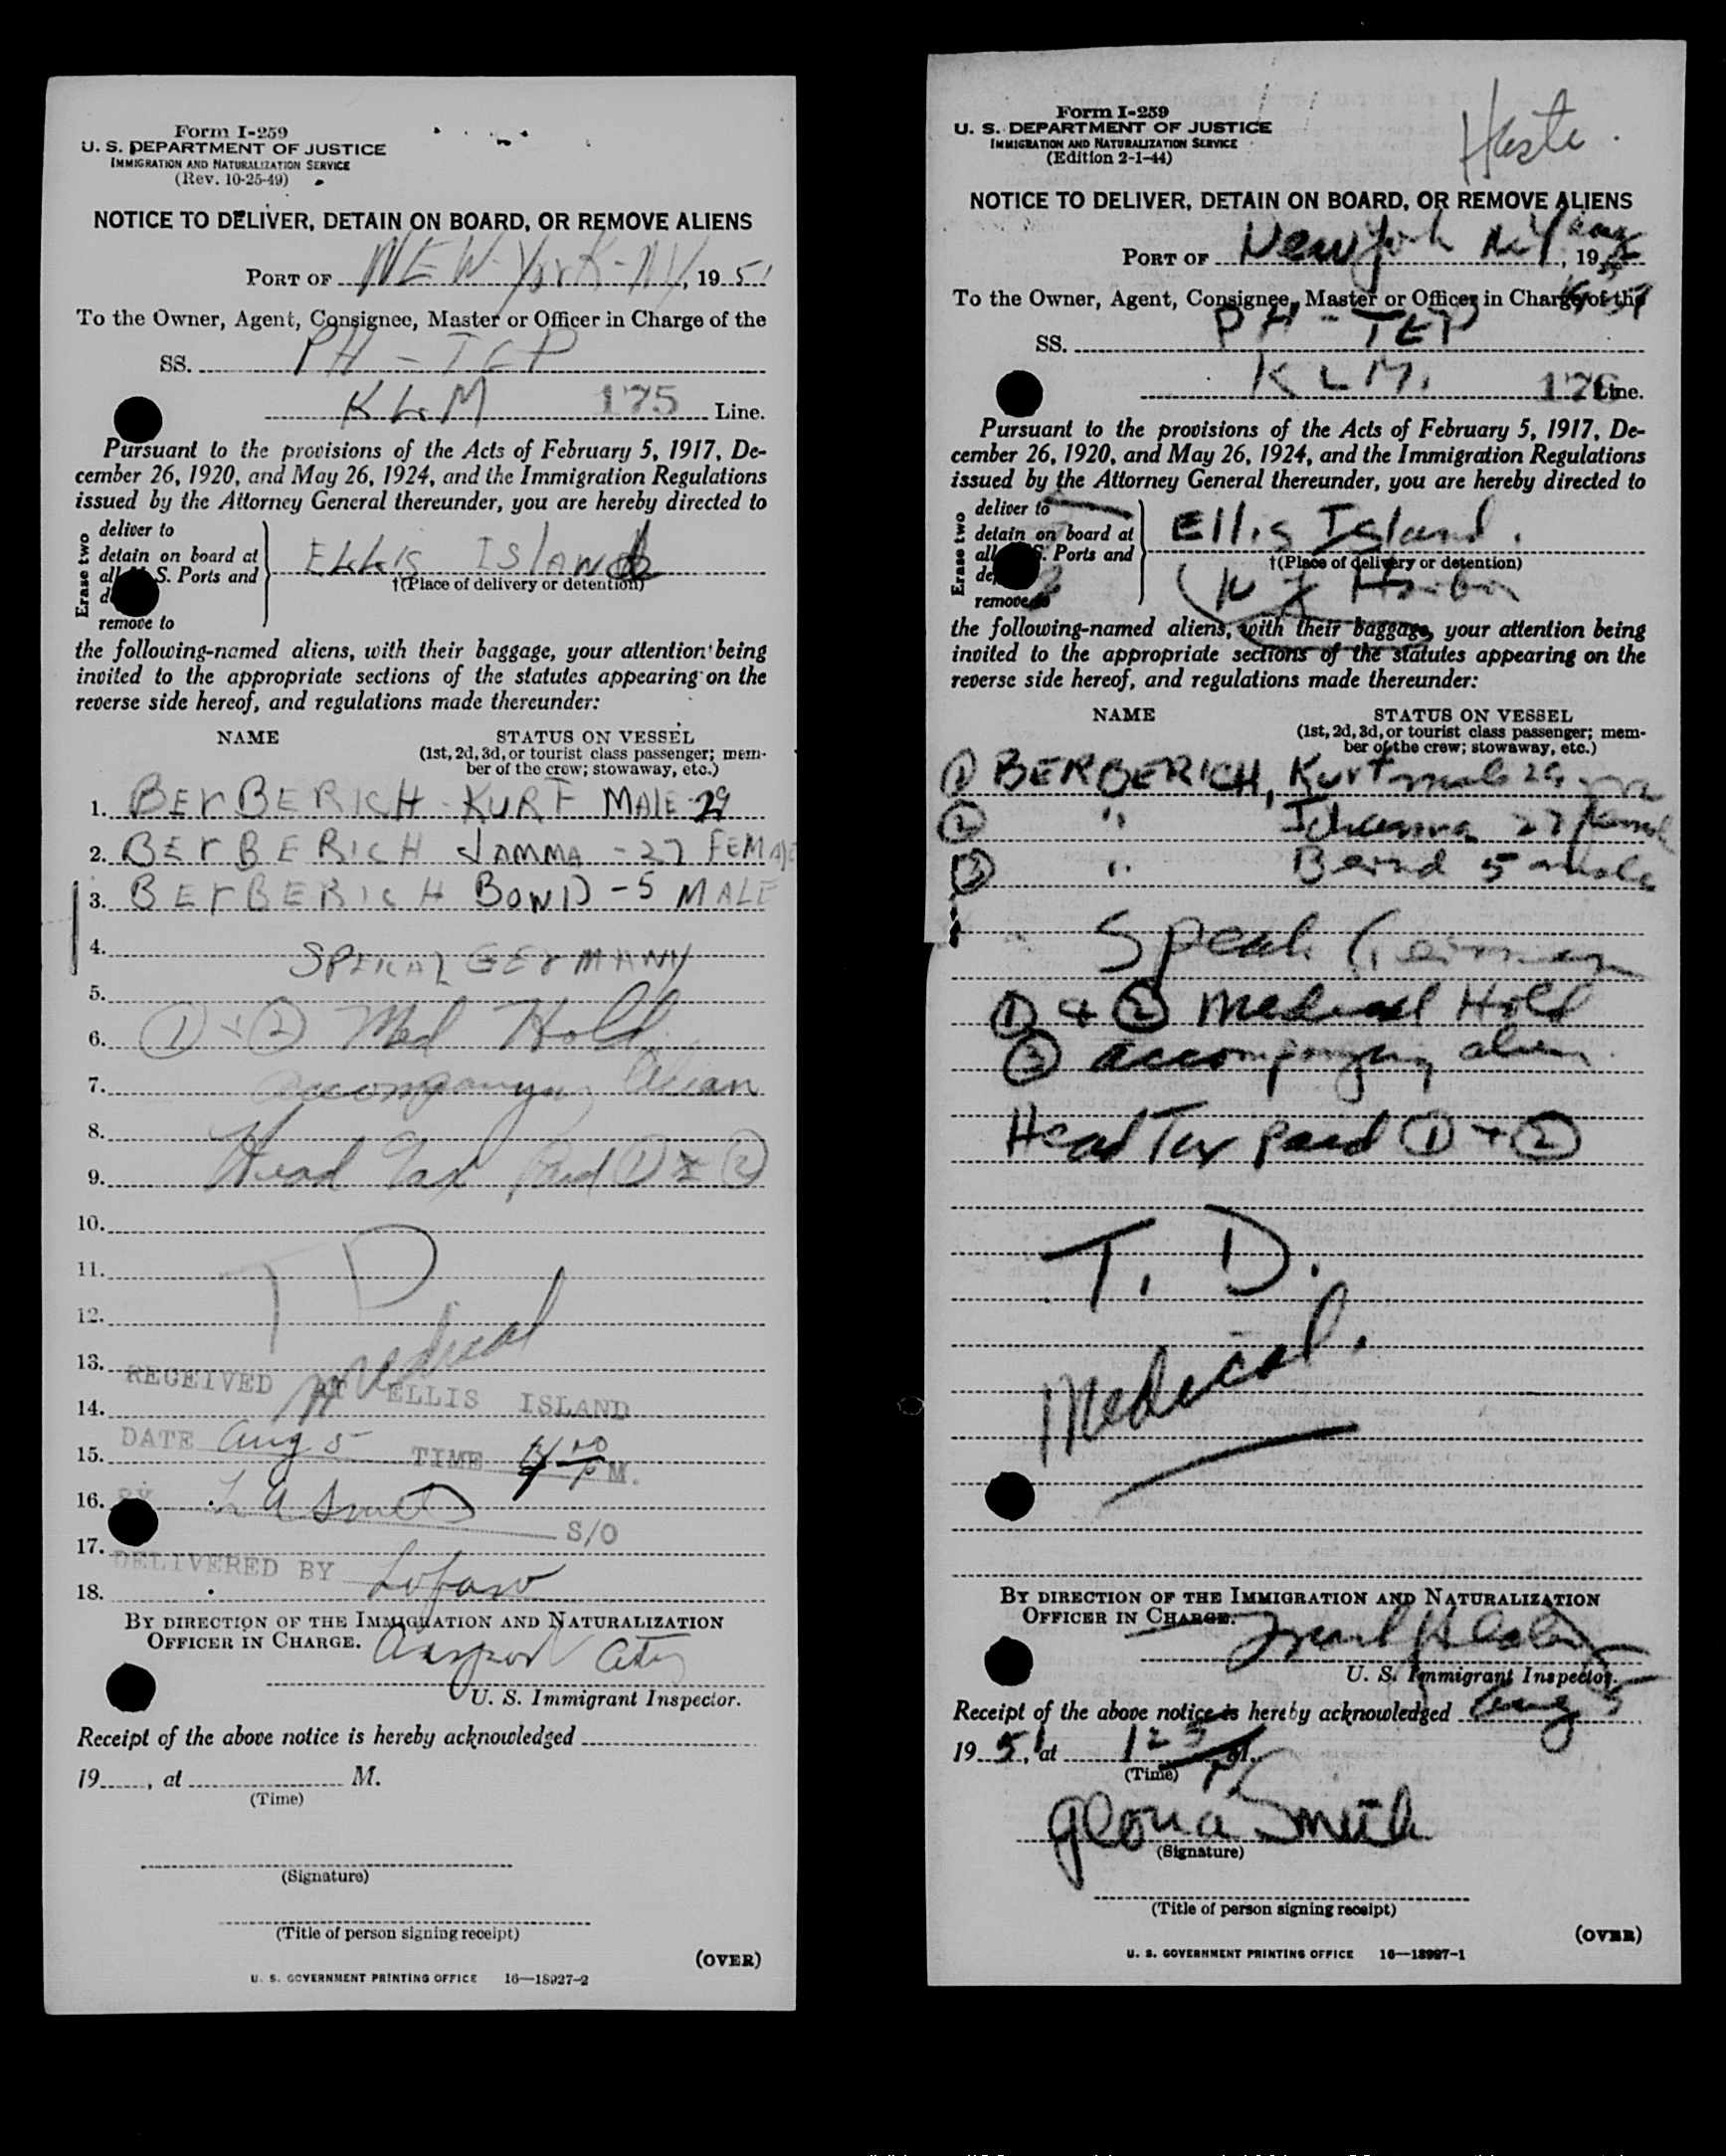 Form I-259
U. S. DEPARTMENT OF JUSTICE
IMMIGRATION AND NATURALIZATION SERVICE
(Rev. 10-25-49)
NOTICE TO DELIVER, DETAIN ON BOARD, OR REMOVE ALIENS
PORT OF NEW-York-NY, 1951
To the Owner, Agent, Consignee, Master or Officer in Charge of the
SS. PH-TEP
KLM 175 Line.
Pursuant to the provisions of the Acts of February 5, 1917, De-
cember 26, 1920, and May 26, 1924, and the Immigration Regulations
issued by the Attorney General thereunder, you are hereby directed to
Erase two
deliver to
detain on board at
all S. Ports and
remove to
ELLIS ISLAND
†(Place of delivery or detention)
the following-named aliens, with their baggage, your attention being
invited to the appropriate sections of the statutes appearing on the
reverse side hereof, and regulations made thereunder:
NAME STATUS ON VESSEL
(1st, 2d, 3d, or tourist class passenger; mem-
ber of the crew; stowaway, etc.)
1. BErBERICH - KURT MALE-29
2. BErBERICH JAMMA -27 FEMALE
3. BErBERICH BOWD -5 MALE
4. GErMANY
5.
6. ① + ② Med Hold
7. accompanying
8.
9. Head Tax Paid ① + ②
10.
11. T D
12.
13. Medical
RECEIVED AT ELLIS ISLAND
14.
DATE Aug 5 TIME M.
15.
16. BY
S/O
17.
DELIVERED BY
18.
BY DIRECTION OF THE IMMIGRATION AND NATURALIZATION
OFFICER IN CHARGE.
U. S. Immigrant Inspector.
Receipt of the above notice is hereby acknowledged
19 , at M.
(Time)
(Signature)
(Title of person signing receipt)
(OVER)
U. S. GOVERNMENT PRINTING OFFICE 16—18927-2
Form I-259
U. S. DEPARTMENT OF JUSTICE
IMMIGRATION AND NATURALIZATION SERVICE
(Edition 2-1-44)
NOTICE TO DELIVER, DETAIN ON BOARD, OR REMOVE ALIENS
PORT OF New York N.Y. Aug, 19
To the Owner, Agent, Consignee, Master or Officer in Charge of the
SS. PH-TEP
KLM. 176 Line.
Pursuant to the provisions of the Acts of February 5, 1917, De-
cember 26, 1920, and May 26, 1924, and the Immigration Regulations
issued by the Attorney General thereunder, you are hereby directed to
Erase two
deliver to
detain on board at
all S. Ports and
remove to
Ellis Island.
†(Place of delivery or detention)
N Y Harbor
the following-named aliens, with their baggage, your attention being
invited to the appropriate sections of the statutes appearing on the
reverse side hereof, and regulations made thereunder:
NAME STATUS ON VESSEL
(1st, 2d, 3d, or tourist class passenger; mem-
ber of the crew; stowaway, etc.)
① BERBERICH, Kurt male 29
② " Johanna 27 female
③ " Bernd 5 male
Speak German
① + ② Medical Hold
③ accompanying alien.
Head Tax paid ① + ②
T. D.
Medical.
BY DIRECTION OF THE IMMIGRATION AND NATURALIZATION
OFFICER IN CHARGE.
U. S. Immigrant Inspector.
Receipt of the above notice is hereby acknowledged Aug 5
1951, at M.
(Time)
Gloria Smith
(Signature)
(Title of person signing receipt)
(OVER)
U. S. GOVERNMENT PRINTING OFFICE 16—18927-1